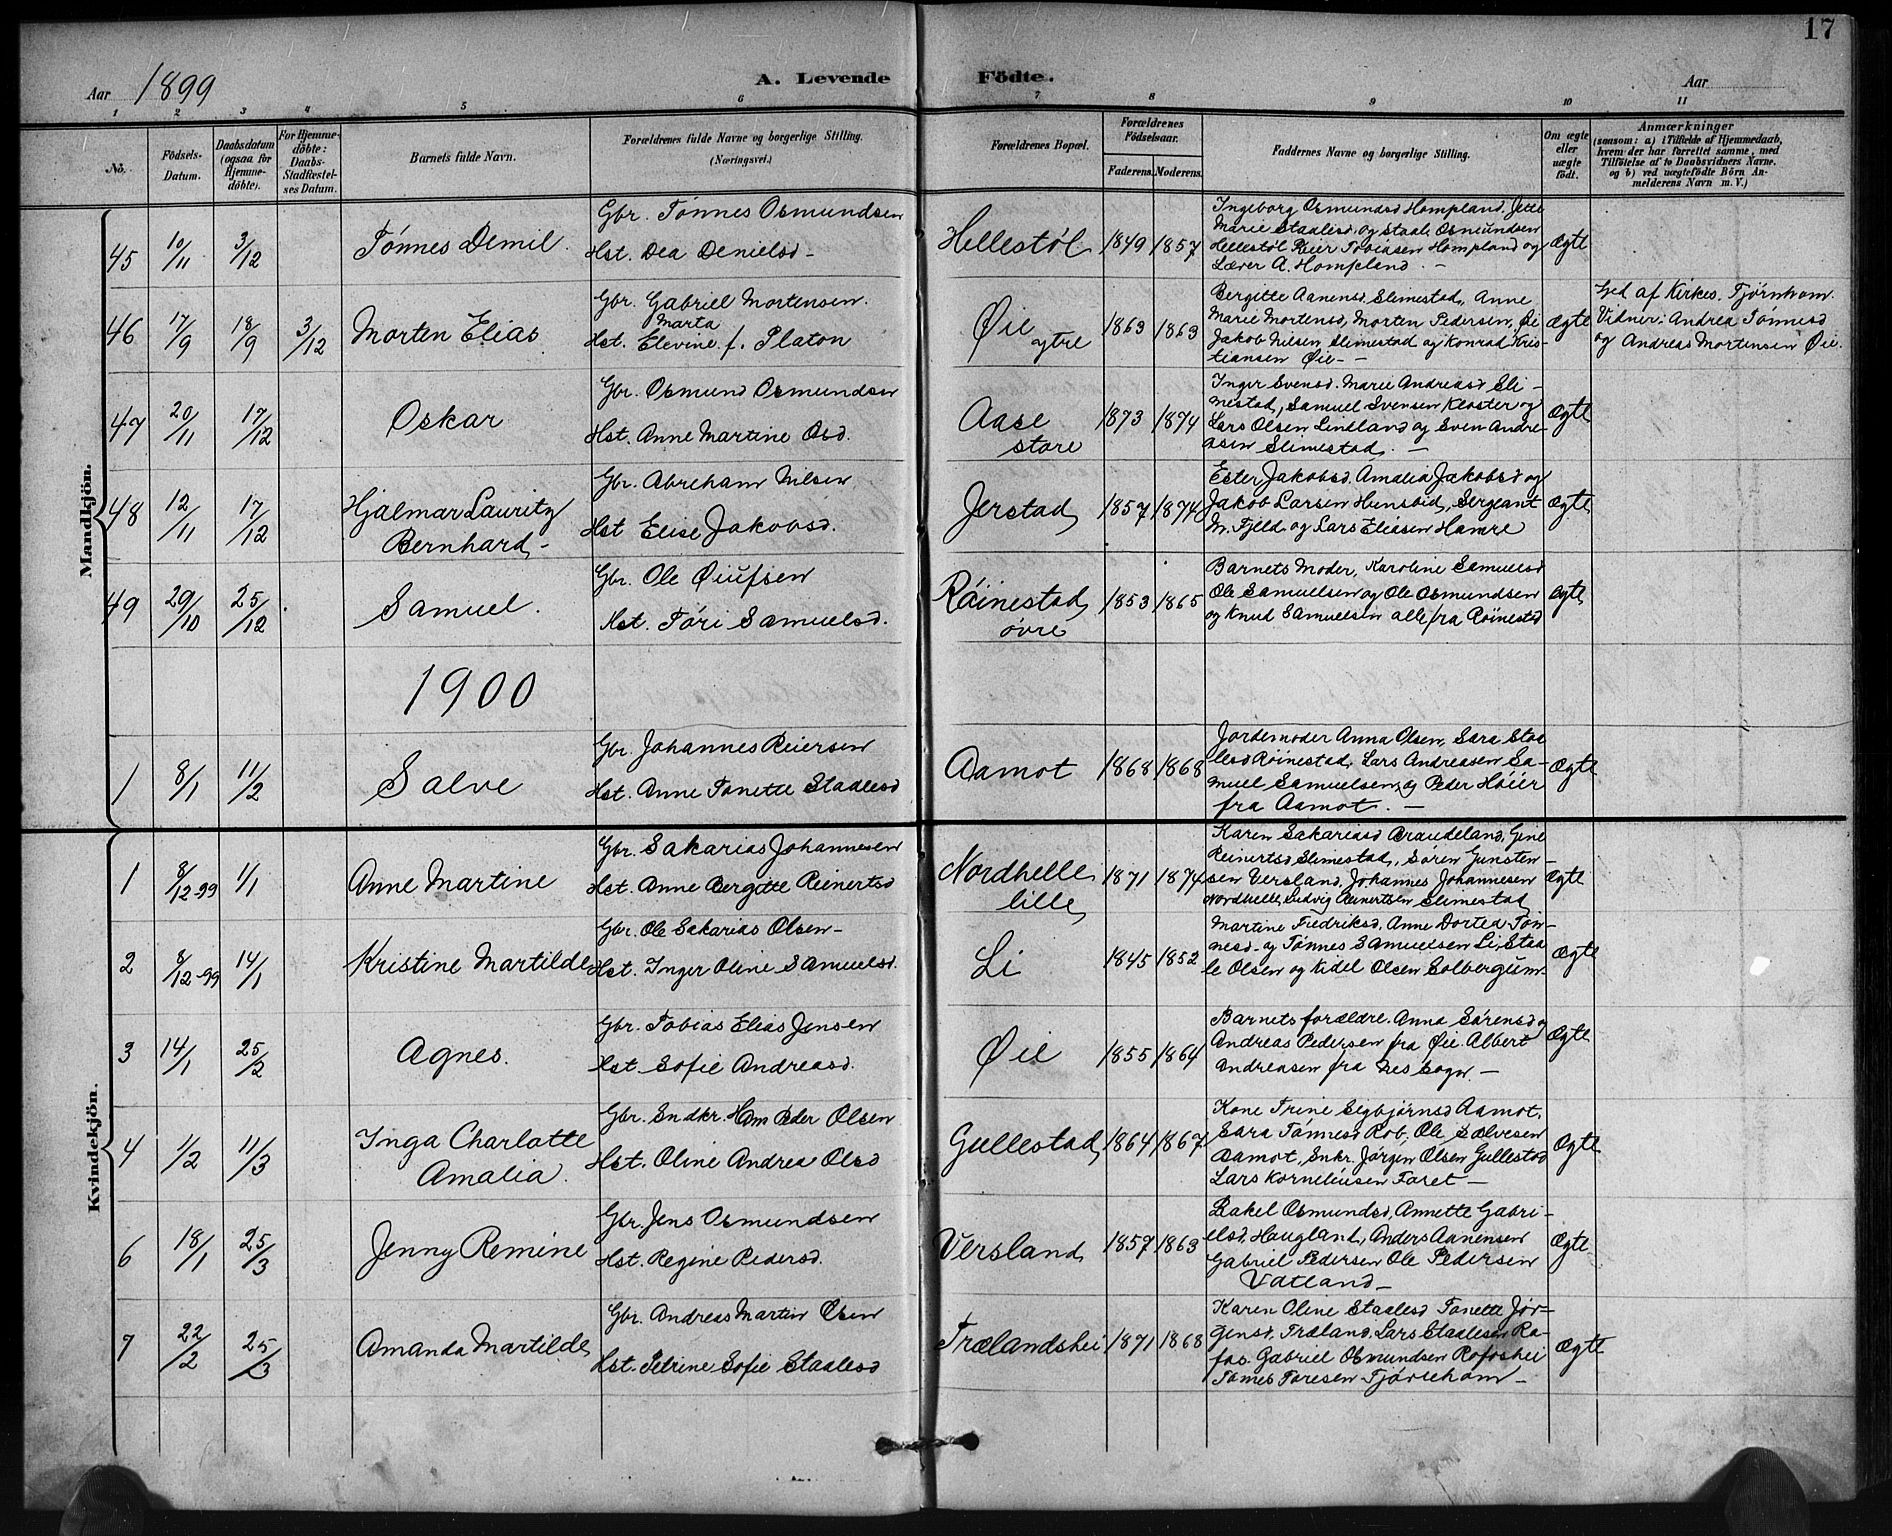 17
Aar 1899
A. Levende
Födte.
Aar
1 2 3 4 5 6 7 8 9 10 11
No.
Födsels-Datum.
Daabsdatum (ogsaa for Hjemme-döbte).
For Hjemme-döbte: Daabs-Stadfæstel-ses Datum.
Barnets fulde Navn.
Forældrenes fulde Navne og borgerlige Stilling.
(Næringsvei.)
Forældrenes Bopæl.
Forældrenes Födselsaar.
Faderens. Moderens.
Faddernes Navne og borgerlige Stilling.
Om ægte eller uægte födt.
Anmærkninger
(saasom: a) i Tilfælde af Hjemmedaab,
hvem der har forrettet samme, med
Tilföielse af to Daabsvidners Navne.
og b) ved uægtefödte Börn An-
melderens Navn m. V.)
Mandkjön.
45 10/11 3/12 Tønnes Demil.
Gbr. Tønnes Osmundsen
Hst. Dea Denielsd -
Hellestøl 1849 1857
Ingeborg Osmundsd Hompland, Jette
Marie Staalesd, og Staale Osmundsen
Hellestøl Reier Tobiasen Hompland og
Lærer A. Hompland. -
Ægte
46 17/9 18/9 3/12 Morten Elias
Gbr. Gabriel Mortensen.
Marta
Hst. Elevine f. Platon
Øie
ytre
1863 1863
Bergitte Aanensd. Slimestad, Anne
Marie Mortensd, Morten Pedersen, Øi
Jakob Nilsen Slimestad og Konrad Kris-
tiansen Øie - -
Ægte
Ved af Kirkes. Tjørnhom.
Vidner: Andrea Tønnesd
og Andreas Mortensen Øie.
47 20/11 17/12 Oskar
Gbr. Osmund Osmundsen
Hst. Anne Martine Osd.
Aase
store
1873 1874
Inger Svensd. Marie Andreasd Sli-
mestad, Samuel Svensen Kloster og
Lars Olsen Lindland og Sven Andre-
asen Slimestad. -
Ægte
48 12/11 17/12 Hjalmar Lauritz
Bernhard -
Gbr. Abreham Nilsen
Hst Elise Jakobsd.
Jerstad 1857 1874
Ester Jakobsd. Amalia Jakobsd og
Jakob Larsen Hunsbid, Sergeant
M. Fjeld og Lars Eliasen Hamre
Ægte
49 29/10 25/12 Samuel.
Gbr. Ole Øiufsen
Hst. Tóri Samuelsd.
Róinestad
óvre
1853 1865
Barnets Moder, Karoline Samuelsd
Ole Samuelsen og Ole Osmundsen
og Knud Samuelsen alle fra Róinestd
Ægte
1900
1 8/1 11/2 Salve
Gbr. Johannes Reiersen
Hst. Anne Tonette Staalesd
Aamot 1868 1868
Jordemoder Anna Olsen, Sara Staa
lesd Róinestad, Lars Andreasen Sa-
muel Samuelsen og Peder Hóiér
fra Aamot. -
Ægte
Kvindekjön.
1 8/12-99 1/1 Anne Martine
Gbr. Sakarias Johannesen
Hst. Anne Bergitte Reinertsd
Nordhelle
lille
1871 1874
Karen Sakariasd Braudeland, Gine
Reinertsd Slimestad, Sóren Gunsten-
sen Versland, Johannes Johannesen
Nordhelle, Ludvig Reinertsen Slimestad
Ægte
2 8/12-99 14/1 Kristine Martilde
Gbr. Ole Sakarias Olsen -
Hst. Inger Oline Samuelsd.
Li 1845 1852
Martine Fredriksd, Anne Dortea Tón-
nesd - og Tónnes Samuelsen Li, Staa
le Olsen og Kidel Olsen Solbergum
Ægte
3 14/1 25/2 Agnes.
Gbr. Tobias Elias Jensen
Hst. Sofie Andreasd.
Øie 1855 1864
Barnets forældre, Anna Sórensd og
Andreas Pedersen fra Øie. Albert
Andreasen fra Nes Sogn. -
Ægte
4 1/2 11/3 Inga Charlotte
Amalia.
Gbr. Sndkr. Hans Peder Olsen
Hst. Oline Andrea Olsd
Gullestad 1864 1867
Kone Trine Segbjørnsd Aamot,
Sara Tónnesd Rob, Ole Salvesen
Aamot, Snkr. Jørgen Olsen Gullestad
Lars Korneliusen Faret -
Ægte
6 18/1 25/3 Jenny Remine
Gbr. Jens Osmundsen
Hst. Regine Pedersd.
Versland 1857 1863
Rakel Osmundsd, Annette Gabri-
elsd. Haugland, Anders Aanensen
Gabriel Pedersen Ole Pedersen
Vatland -
Ægte
7 22/2 25/3 Amanda Martilde
Gbr. Andreas Martin Osen
Hst. Petrine Sofie Staalesd
Trælandshei 1871 1868
Karen Oline Staalesd Tonette Jør-
gensd. Træland, Lars Staalesen Ra-
fos. Gabriel Osmundsen Rafoshei
Tómes Toresen Tjórehom -
Ægte